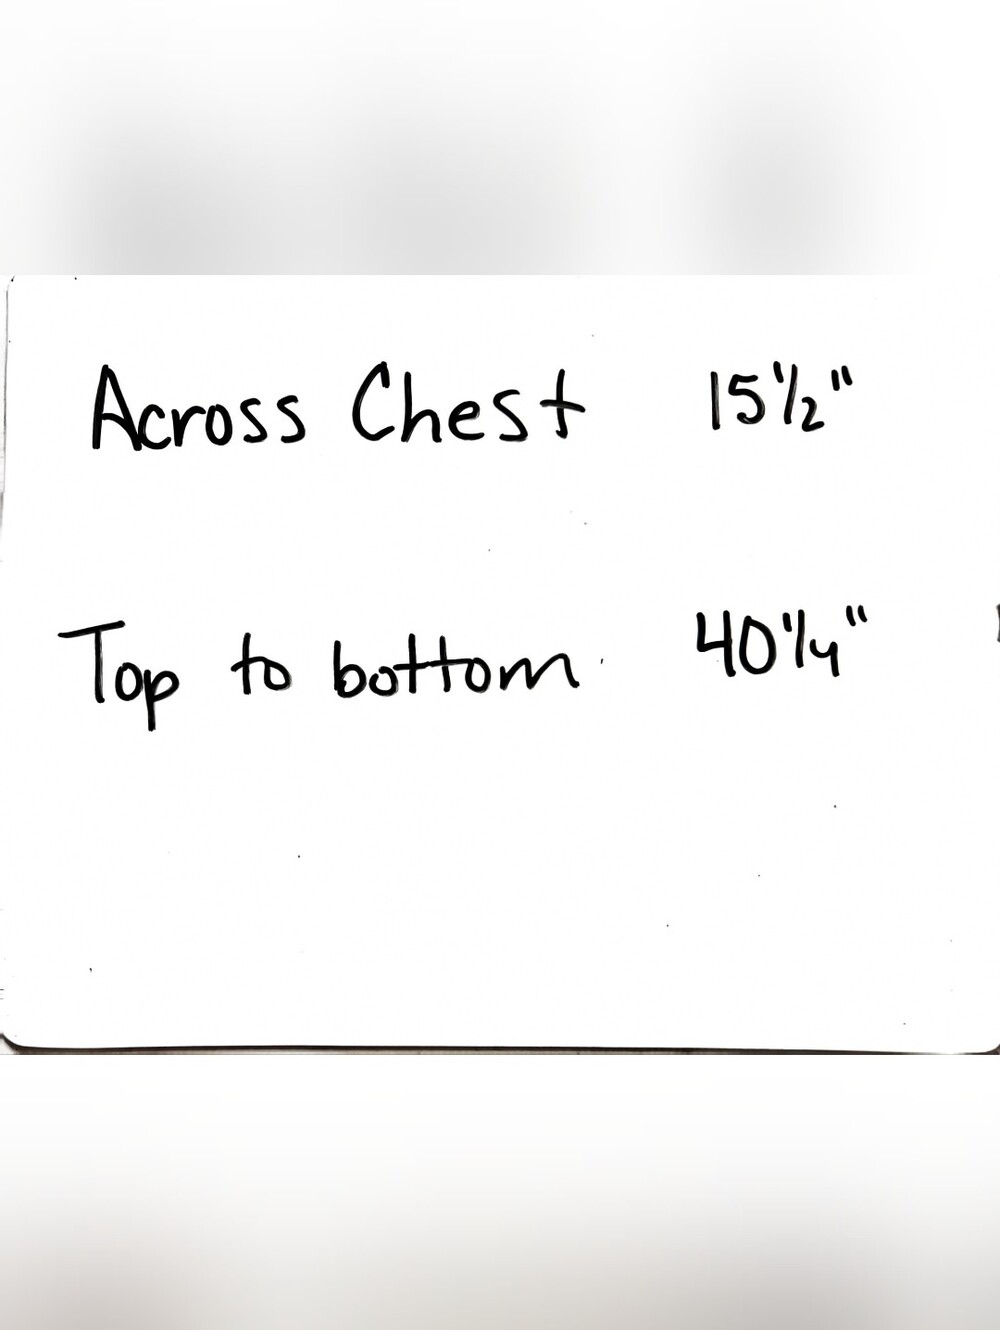 Across Chest 15 1/2"
Top to bottom 40 1/4"